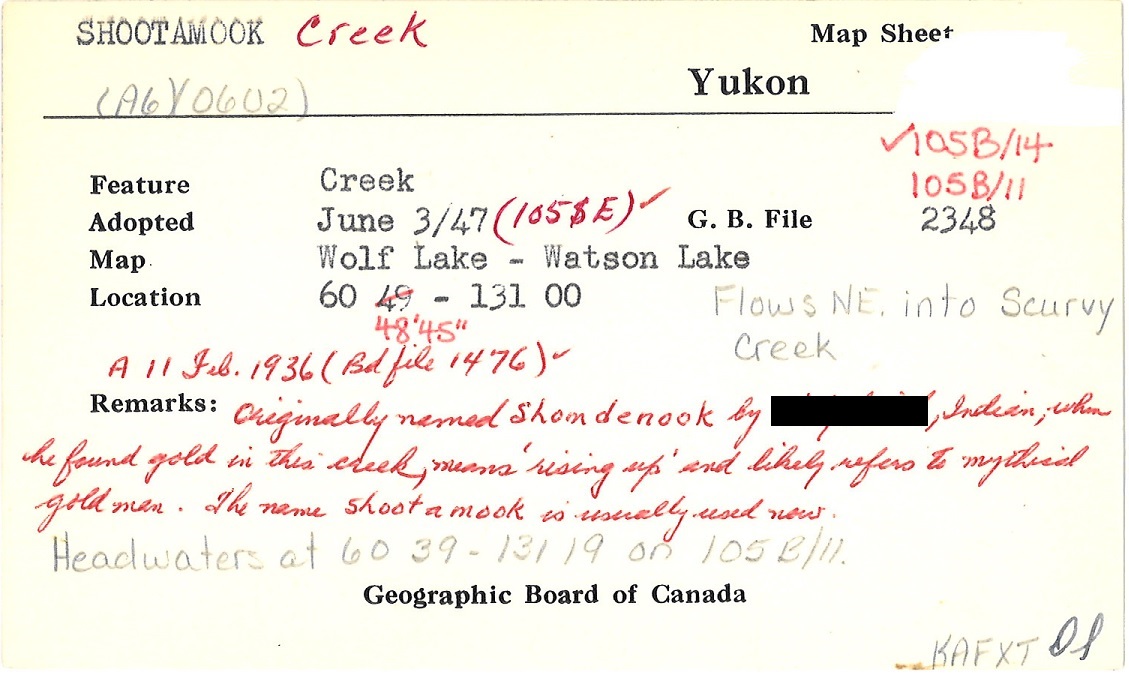 SHOOTAMOOK Creek Map Sheet
Yukon
(A6)(0602)
105B/14
105B/11
Feature Creek
Adopted June 3/47 (105 S E) G. B. File 2348
Map Wolf Lake - Watson Lake
Location 60 49 - 131 00 Flows NE. into Scurvy
48'45" Creek
A 11 Feb. 1936 (Bd file 1476)
Remarks: Originally named Shondenook by , Indian, when
he found gold in this creek, means 'rising up' and likely refers to mythical
gold man. The name Shootamook is usually used now.
Headwaters at 60 39 - 131 19 on 105 B/11.
Geographic Board of Canada
KAFXT